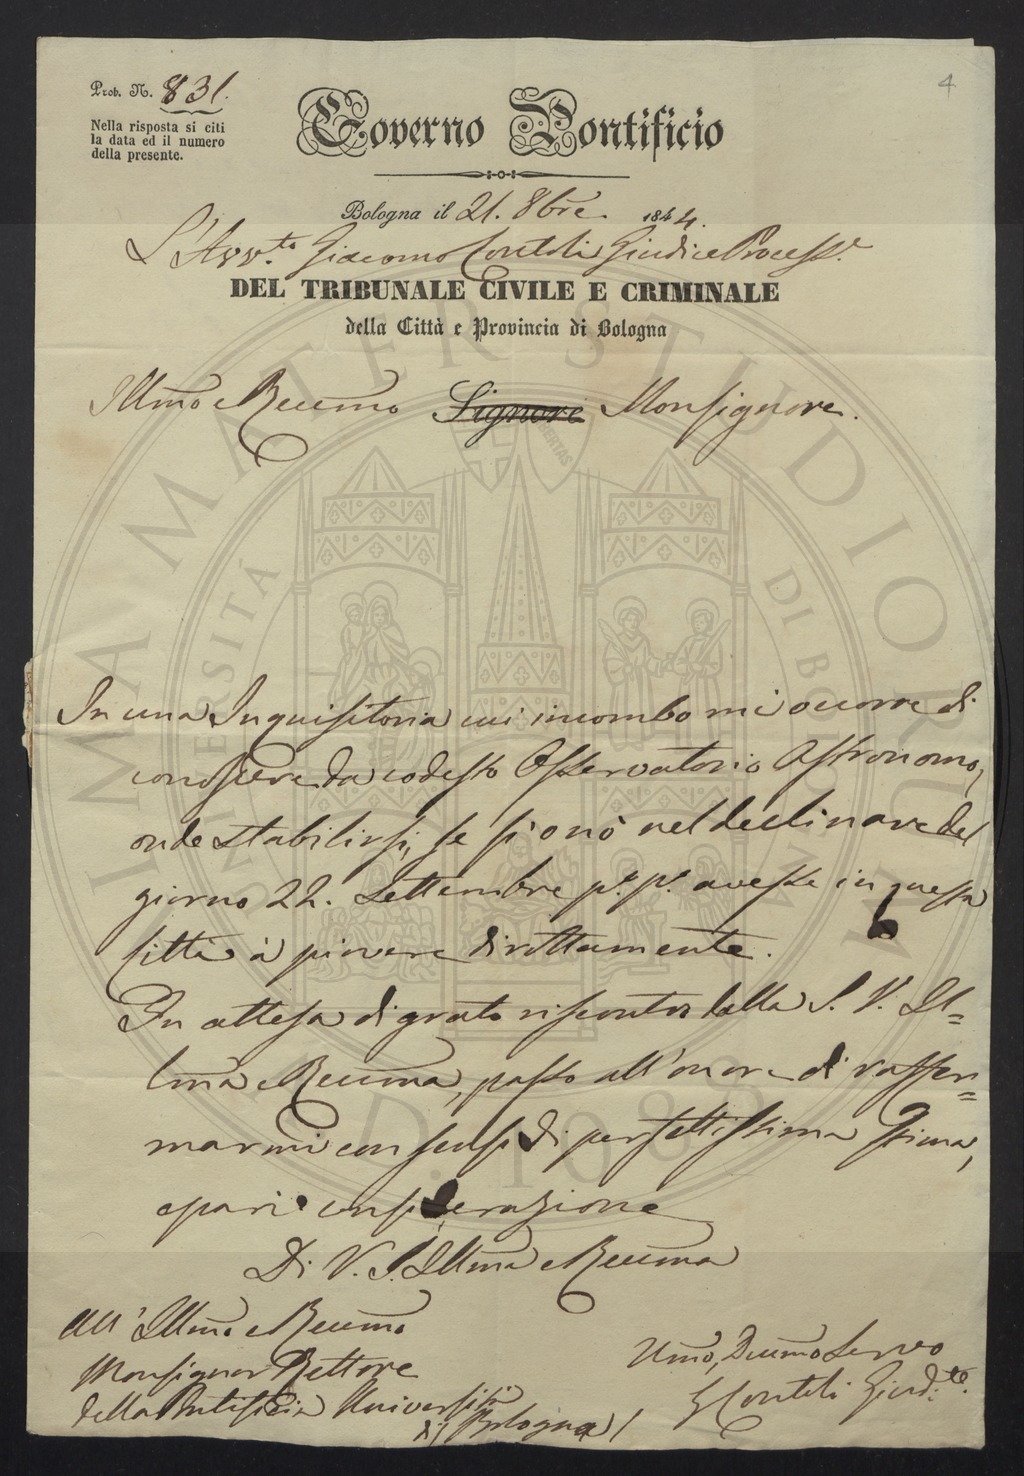 4
Prot. N. 831.
Nella risposta si citi
la data ed il numero
della presente.
Governo Pontificio
Bologna il 21. 8bre 1844.
L'Avv.to Giacomo Contoli Giudice Process.e
DEL TRIBUNALE CIVILE E CRIMINALE
della Città e Provincia di Bologna
Illmo e Rmo Signore Monsignore.
In una Inquisitoria cui incombo mi occorre di
conoscere da codesto Osservatorio Astronomo,
onde stabilirsi, se si o nò nel declinare del
giorno 22. Settembre p.o p.o avesse in questa
città a piovere dirottamente.
In attesa di grato riscontro dalla S. V. Il=
lma e Rma, passo all'onore di raffer=
marmi con sensi di perfettissima stima,
e pari considerazione
Di V. S. Illma e Rma
All'Illmo e Rmo
Monsignor Rettore
della Pontificia Università
di Bologna
Umo, Dmo Servo
G Contoli Giud.ce
ALMA MATER STUDIORUM
UNIVERSITÁ DI BOLOGNA
A.D. 1088